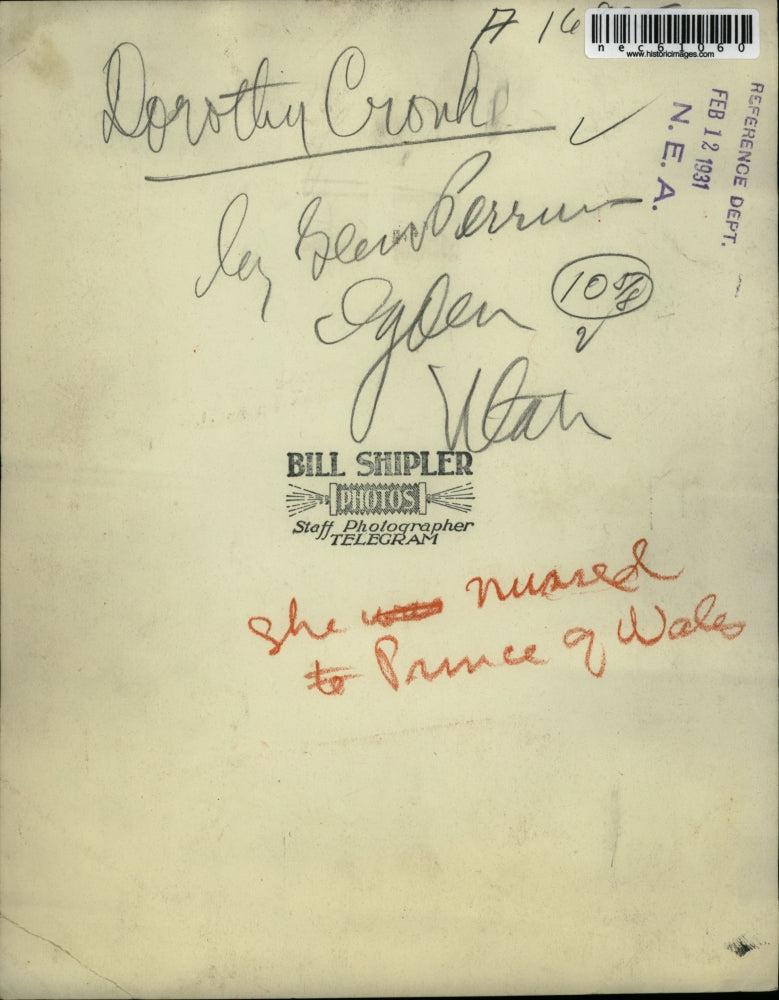 A 16
nec61060
www.historicimages.com
REFERENCE DEPT.
FEB 12 1931
N. E. A.
Dorothy Cronk
by Glen Perrins
Ogden
10 5/8
2
Utah
BILL SHIPLER
PHOTOS
Staff Photographer
TELEGRAM
She was nursed
to Prince of Wales